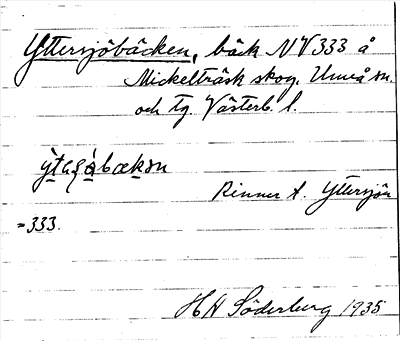 Yttersjöbäcken, bäck NV 333 å
Mickelträsk skog. Umeå sn.
och tg. Västerb. l.
Rinner t. Yttersjön
=333.
H N Söderberg 1935